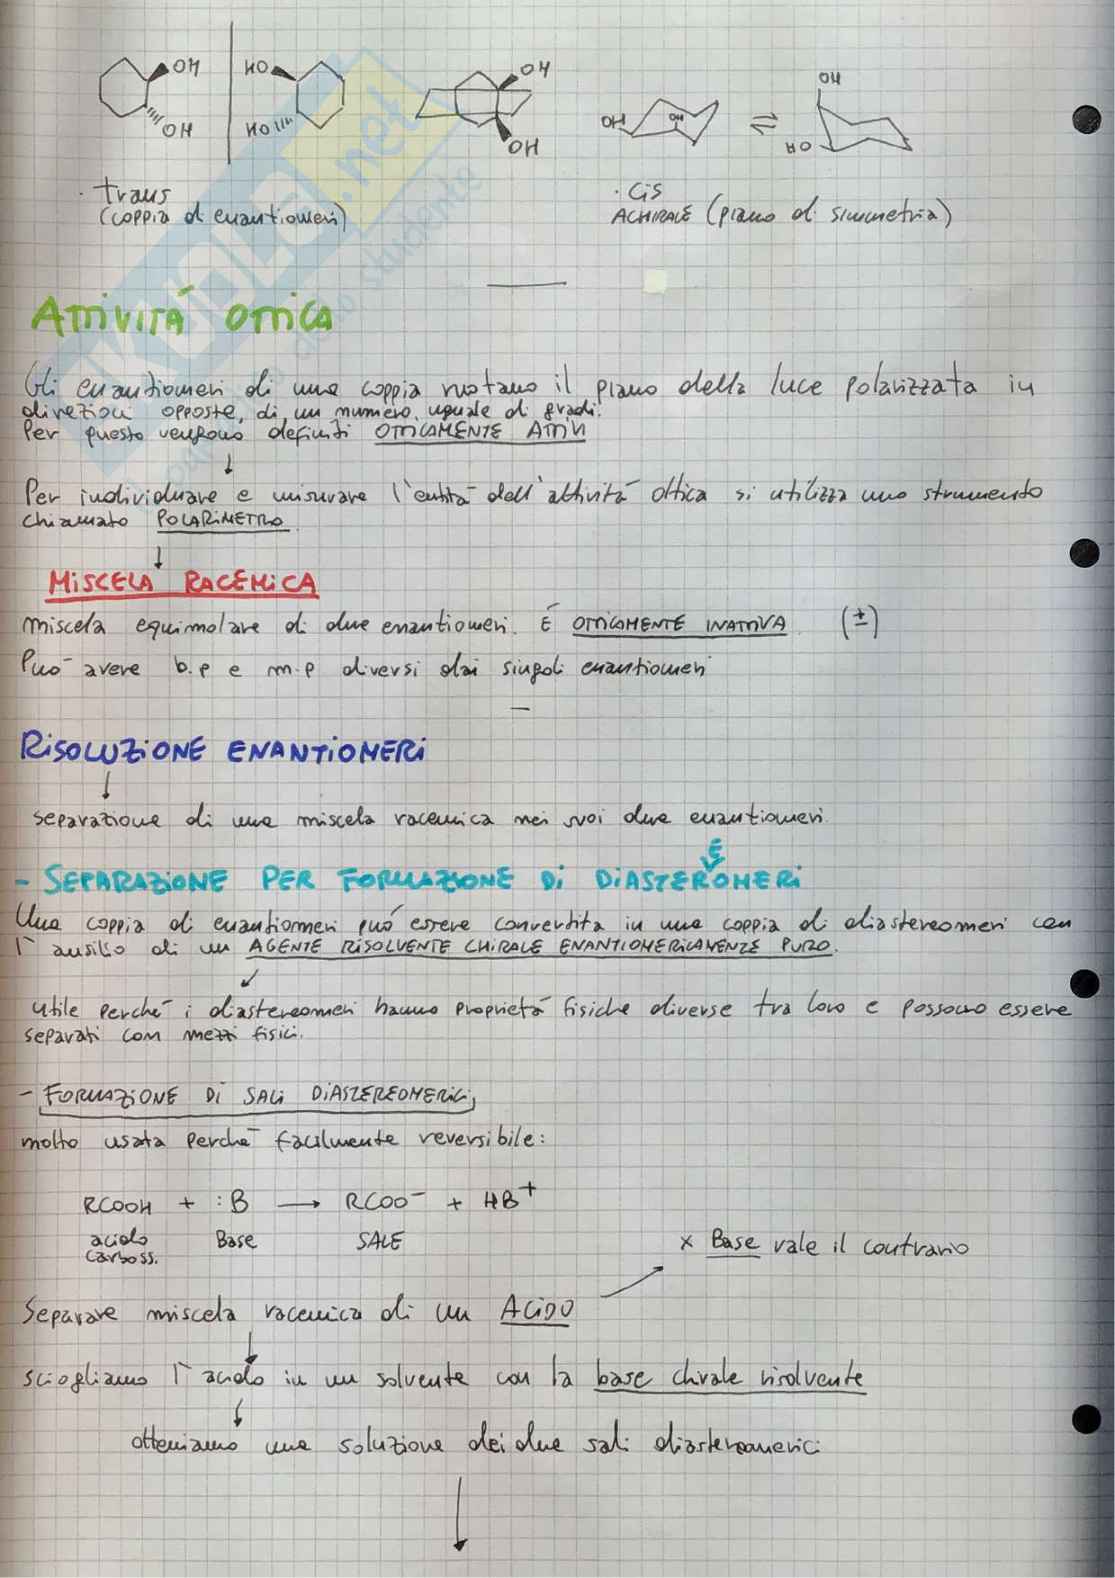 OH HO OH OH
OH HO OH OH OH HO
· trans · Cis
(coppia di enantiomeri) ACHIRALE (piano di simmetria)
SKUOLA.net
ATTIVITÀ OTTICA
Gli enantiomeri di una coppia ruotano il piano della luce polarizzata in
direzioni opposte, di un numero uguale di gradi.
Per questo vengono definiti OTTICAMENTE ATTIVI
↓
Per individuare e misurare l'entità dell'attività ottica si utilizza uno strumento
chiamato POLARIMETRO.
↓
MISCELA RACEMICA
miscela equimolare di due enantiomeri. È OTTICAMENTE INATTIVA. (±)
Può avere b.p e m.p diversi dai singoli enantiomeri
RISOLUZIONE ENANTIOMERI
↓
separazione di una miscela racemica nei suoi due enantiomeri.
E
- SEPARAZIONE PER FORMAZIONE DI DIASTEROMERI
Una coppia di enantiomeri può essere convertita in una coppia di diastereomeri con
l'ausilio di un AGENTE RISOLVENTE CHIRALE ENANTIOMERICAMENTE PURO.
↓
utile perché i diastereomeri hanno proprietà fisiche diverse tra loro e possono essere
separati con mezzi fisici.
- FORMAZIONE DI SALI DIASTEREOMERICI,
molto usata perché facilmente reversibile:
RCOOH + :B → RCOO⁻ + HB⁺
acido Base SALE
carboss.
x Base vale il contrario
Separare miscela racemica di un ACIDO
↓
sciogliamo l'acido in un solvente con la base chirale risolvente
↓
otteniamo una soluzione dei due sali diastereomerici
↓